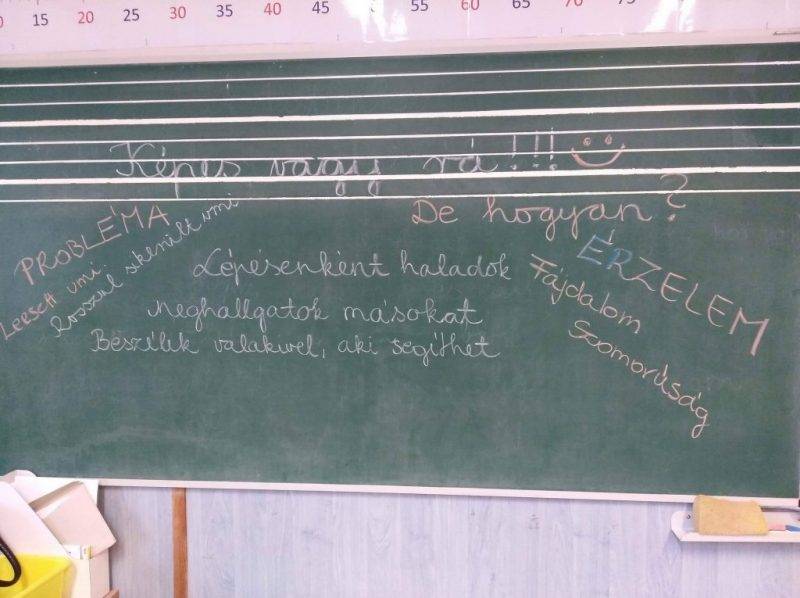 15 20 25 30 35 40 45 50 55 60 65 70 75
Képes vagy rá!!!
De hogyan?
PROBLÉMA
Leesett vmi
Rosszul sikerült vmi
Lépésenként haladok
Meghallgatok másokat
Beszélek valakivel, aki segíthet
ÉRZELEM
Fájdalom
Szomorúság